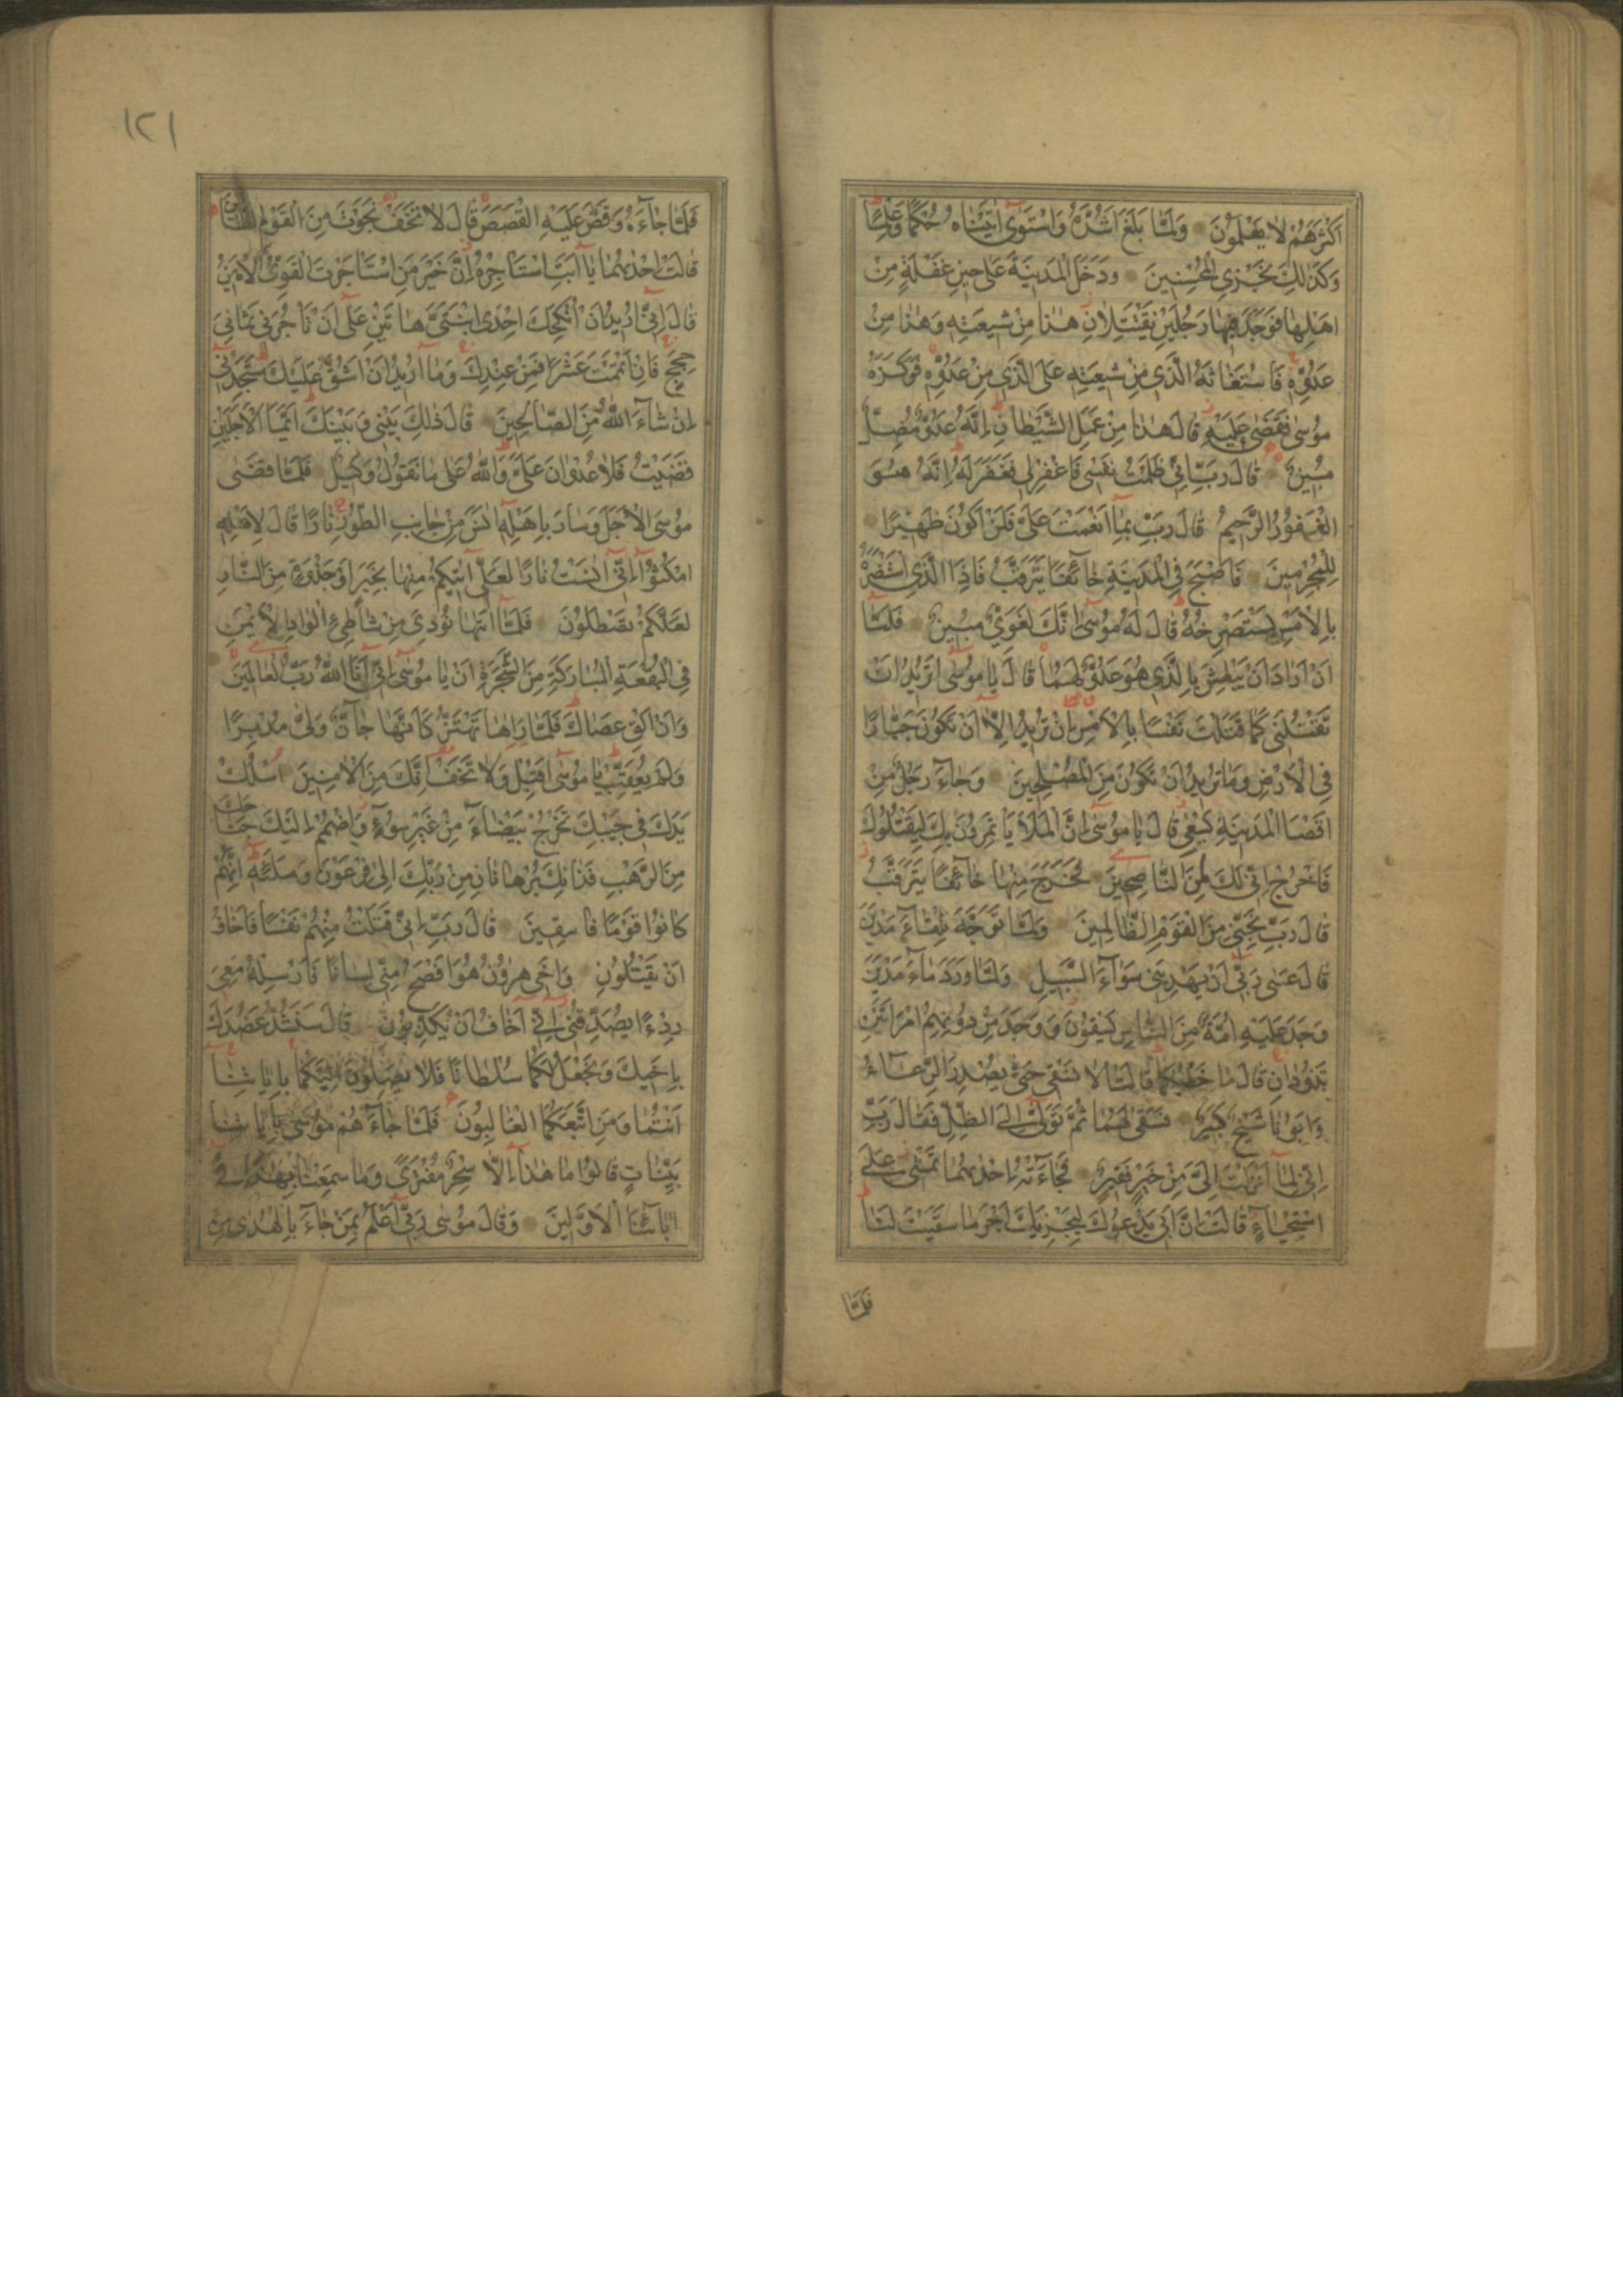 اَكْثَرَهُمْ لَا يَعْلَمُونَ وَلَمَّا بَلَغَ اَشُدَّهُ وَاسْتَوٰى اٰتَيْنَاهُ حُكْمًا وَعِلْمًا
وَكَذٰلِكَ نَجْزِى الْمُحْسِنِينَ وَدَخَلَ الْمَدِينَةَ عَلٰى حِينِ غَفْلَةٍ مِنْ
اَهْلِهَا فَوَجَدَ فِيهَا رَجُلَيْنِ يَقْتَتِلَانِ هٰذَا مِنْ شِيعَتِهِ وَهٰذَا مِنْ
عَدُوِّهِ فَاسْتَغَاثَهُ الَّذِى مِنْ شِيعَتِهِ عَلَى الَّذِى مِنْ عَدُوِّهِ فَوَكَزَهُ
مُوسٰى فَقَضٰى عَلَيْهِ قَالَ هٰذَا مِنْ عَمَلِ الشَّيْطَانِ اِنَّهُ عَدُوٌّ مُضِلٌّ
مُبِينٌ قَالَ رَبِّ اِنِّى ظَلَمْتُ نَفْسِى فَاغْفِرْ لِى فَغَفَرَ لَهُ اِنَّهُ هُوَ
الْغَفُورُ الرَّحِيمُ قَالَ رَبِّ بِمَا اَنْعَمْتَ عَلَىَّ فَلَنْ اَكُونَ ظَهِيرًا
لِلْمُجْرِمِينَ فَاَصْبَحَ فِى الْمَدِينَةِ خَائِفًا يَتَرَقَّبُ فَاِذَا الَّذِى اسْتَنْصَرَهُ
بِالْاَمْسِ يَسْتَصْرِخُهُ قَالَ لَهُ مُوسٰى اِنَّكَ لَغَوِىٌّ مُبِينٌ فَلَمَّا
اَنْ اَرَادَ اَنْ يَبْطِشَ بِالَّذِى هُوَ عَدُوٌّ لَهُمَا قَالَ يَا مُوسٰى اَتُرِيدُ اَنْ
تَقْتُلَنِى كَمَا قَتَلْتَ نَفْسًا بِالْاَمْسِ اِنْ تُرِيدُ اِلَّا اَنْ تَكُونَ جَبَّارًا
فِى الْاَرْضِ وَمَا تُرِيدُ اَنْ تَكُونَ مِنَ الْمُصْلِحِينَ وَجَاءَ رَجُلٌ مِنْ
اَقْصَا الْمَدِينَةِ يَسْعٰى قَالَ يَا مُوسٰى اِنَّ الْمَلَاَ يَاْتَمِرُونَ بِكَ لِيَقْتُلُوكَ
فَاخْرُجْ اِنِّى لَكَ مِنَ النَّاصِحِينَ فَخَرَجَ مِنْهَا خَائِفًا يَتَرَقَّبُ
قَالَ رَبِّ نَجِّنِى مِنَ الْقَوْمِ الظَّالِمِينَ وَلَمَّا تَوَجَّهَ تِلْقَاءَ مَدْيَنَ
قَالَ عَسٰى رَبِّى اَنْ يَهْدِيَنِى سَوَاءَ السَّبِيلِ وَلَمَّا وَرَدَ مَاءَ مَدْيَنَ
وَجَدَ عَلَيْهِ اُمَّةً مِنَ النَّاسِ يَسْقُونَ وَوَجَدَ مِنْ دُونِهِمُ امْرَاَتَيْنِ
تَذُودَانِ قَالَ مَا خَطْبُكُمَا قَالَتَا لَا نَسْقِى حَتّٰى يُصْدِرَ الرِّعَاءُ
وَاَبُونَا شَيْخٌ كَبِيرٌ فَسَقٰى لَهُمَا ثُمَّ تَوَلّٰى اِلَى الظِّلِّ فَقَالَ رَبِّ
اِنِّى لِمَا اَنْزَلْتَ اِلَىَّ مِنْ خَيْرٍ فَقِيرٌ فَجَاءَتْهُ اِحْدٰيهُمَا تَمْشِى عَلَى
اسْتِحْيَاءٍ قَالَتْ اِنَّ اَبِى يَدْعُوكَ لِيَجْزِيَكَ اَجْرَ مَا سَقَيْتَ لَنَا
فَلَمَّا
١٢١
فَلَمَّا جَاءَهُ وَقَصَّ عَلَيْهِ الْقَصَصَ قَالَ لَا تَخَفْ نَجَوْتَ مِنَ الْقَوْمِ الظَّالِمِينَ
قَالَتْ اِحْدٰيهُمَا يَا اَبَتِ اسْتَاْجِرْهُ اِنَّ خَيْرَ مَنِ اسْتَاْجَرْتَ الْقَوِىُّ الْاَمِينُ
قَالَ اِنِّى اُرِيدُ اَنْ اُنْكِحَكَ اِحْدَى ابْنَتَىَّ هَاتَيْنِ عَلٰى اَنْ تَاْجُرَنِى ثَمَانِىَ
حِجَجٍ فَاِنْ اَتْمَمْتَ عَشْرًا فَمِنْ عِنْدِكَ وَمَا اُرِيدُ اَنْ اَشُقَّ عَلَيْكَ سَتَجِدُنِى
اِنْ شَاءَ اللّٰهُ مِنَ الصَّالِحِينَ قَالَ ذٰلِكَ بَيْنِى وَبَيْنَكَ اَيَّمَا الْاَجَلَيْنِ
قَضَيْتُ فَلَا عُدْوَانَ عَلَىَّ وَاللّٰهُ عَلٰى مَا نَقُولُ وَكِيلٌ فَلَمَّا قَضٰى
مُوسَى الْاَجَلَ وَسَارَ بِاَهْلِهِ اٰنَسَ مِنْ جَانِبِ الطُّورِ نَارًا قَالَ لِاَهْلِهِ
امْكُثُوا اِنِّى اٰنَسْتُ نَارًا لَعَلِّى اٰتِيكُمْ مِنْهَا بِخَبَرٍ اَوْ جَذْوَةٍ مِنَ النَّارِ
لَعَلَّكُمْ تَصْطَلُونَ فَلَمَّا اَتٰيهَا نُودِىَ مِنْ شَاطِئِ الْوَادِ الْاَيْمَنِ
فِى الْبُقْعَةِ الْمُبَارَكَةِ مِنَ الشَّجَرَةِ اَنْ يَا مُوسٰى اِنِّى اَنَا اللّٰهُ رَبُّ الْعَالَمِينَ
وَاَنْ اَلْقِ عَصَاكَ فَلَمَّا رَاٰهَا تَهْتَزُّ كَاَنَّهَا جَانٌّ وَلّٰى مُدْبِرًا
وَلَمْ يُعَقِّبْ يَا مُوسٰى اَقْبِلْ وَلَا تَخَفْ اِنَّكَ مِنَ الْاٰمِنِينَ اُسْلُكْ
يَدَكَ فِى جَيْبِكَ تَخْرُجْ بَيْضَاءَ مِنْ غَيْرِ سُوءٍ وَاضْمُمْ اِلَيْكَ جَنَاحَكَ
مِنَ الرَّهْبِ فَذَانِكَ بُرْهَانَانِ مِنْ رَبِّكَ اِلٰى فِرْعَوْنَ وَمَلَئِهِ اِنَّهُمْ
كَانُوا قَوْمًا فَاسِقِينَ قَالَ رَبِّ اِنِّى قَتَلْتُ مِنْهُمْ نَفْسًا فَاَخَافُ
اَنْ يَقْتُلُونِ وَاَخِى هٰرُونُ هُوَ اَفْصَحُ مِنِّى لِسَانًا فَاَرْسِلْهُ مَعِىَ
رِدْءًا يُصَدِّقُنِى اِنِّى اَخَافُ اَنْ يُكَذِّبُونِ قَالَ سَنَشُدُّ عَضُدَكَ
بِاَخِيكَ وَنَجْعَلُ لَكُمَا سُلْطَانًا فَلَا يَصِلُونَ اِلَيْكُمَا بِاٰيَاتِنَا
اَنْتُمَا وَمَنِ اتَّبَعَكُمَا الْغَالِبُونَ فَلَمَّا جَاءَهُمْ مُوسٰى بِاٰيَاتِنَا
بَيِّنَاتٍ قَالُوا مَا هٰذَا اِلَّا سِحْرٌ مُفْتَرًى وَمَا سَمِعْنَا بِهٰذَا فِى
اٰبَائِنَا الْاَوَّلِينَ وَقَالَ مُوسٰى رَبِّى اَعْلَمُ بِمَنْ جَاءَ بِالْهُدٰى مِنْ